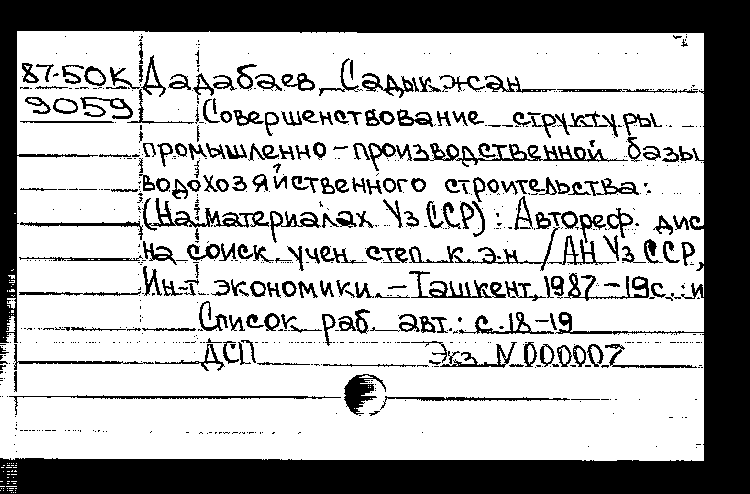 87-50К Дадабаев, Садыкжан
9059 Совершенствование структуры
промышленно-производственной базы
водохозяйственного строительства:
(На материалах УзССР): Автореф. дис
на соиск. учен. степ. к.э.н. /АН УзССР,
Ин-т экономики. - Ташкент, 1987 - 19с.: и
Список раб. авт.: с.18-19
ДСП Экз. N 000007